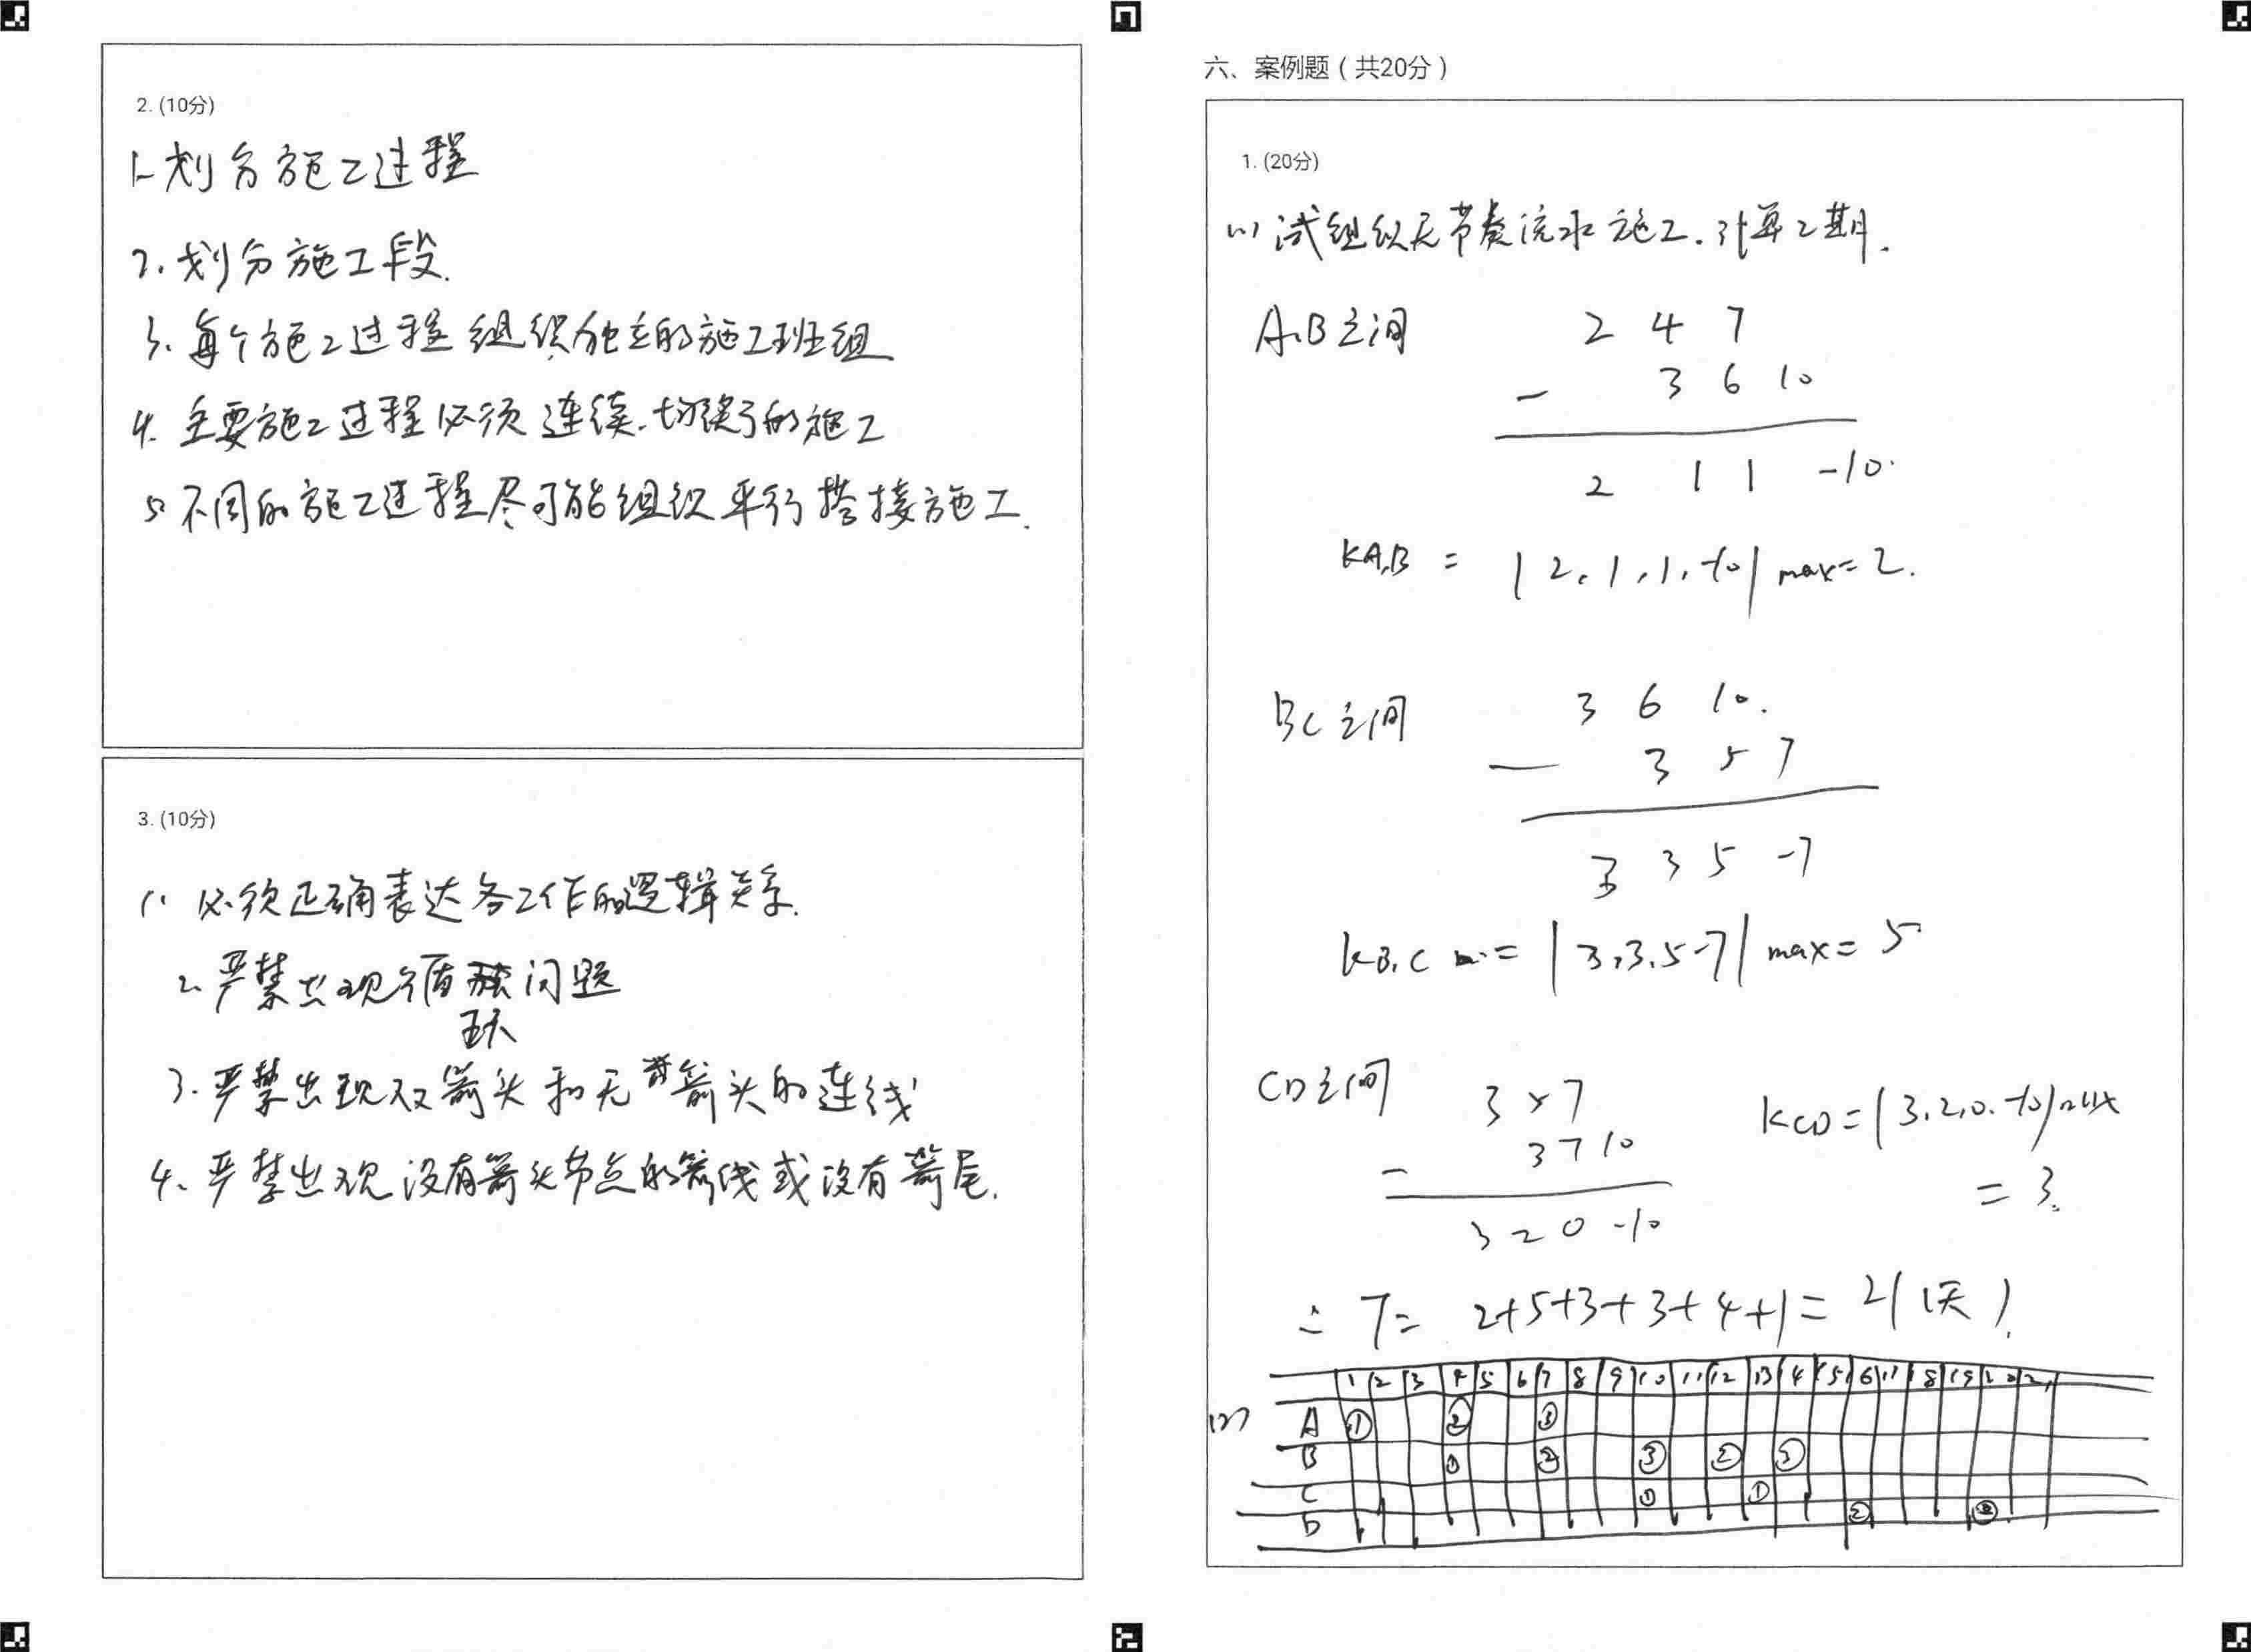 2. (10分)
1. 划分施工过程
2. 划分施工段.
3. 每个施工过程组织独立的施工班组
4. 主要施工过程必须连续.均衡的施工
5. 不同的施工过程尽可能组织平行搭接施工.
3. (10分)
1. 必须正确表达各工作的逻辑关系.
2. 严禁出现循 问题
环
3. 严禁出现双箭头和无箭头的连线
4. 严禁出现没有箭头节点的箭线或没有箭尾.
六、案例题（共20分）
1. (20分)
(1) 试组织无节奏流水施工.计算工期.
A,B之间 2 4 7
- 3 6 10
2 1 1 -10.
KA,B = | 2, 1, 1, -10 | max = 2.
BC之间 3 6 10.
- 3 5 7
3 3 5 -7
KB,C = | 3,3,5 -7 | max = 5
CD之间 3 5 7
- 3 7 10
3 2 0 -10
KCD = (3,2,0.-10) max
= 3.
∴ T = 2+5+3+3+4+1 = 21 (天).
1 2 3 4 5 6 7 8 9 10 11 12 13 14 15 16 17 18 19 20 21
(2) A ① ② ③
B ① ② ③ ② ③
C ① ①
D ②